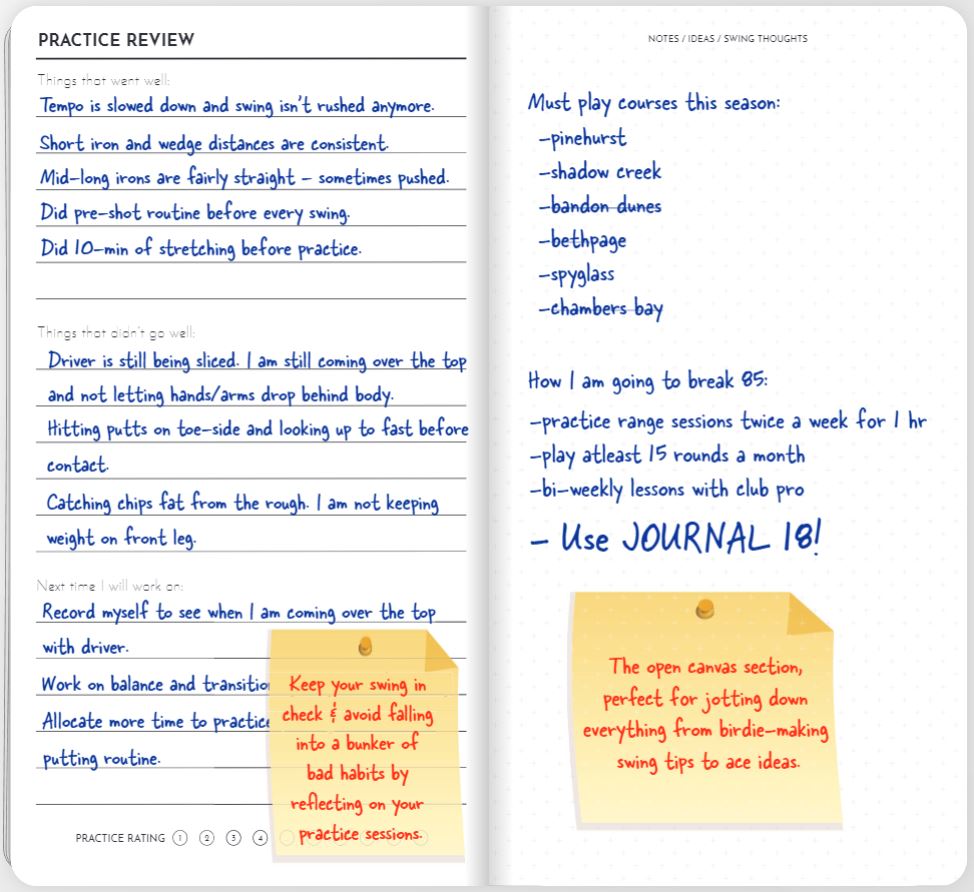 PRACTICE REVIEW
Things that went well:
Tempo is slowed down and swing isn't rushed anymore.
Short iron and wedge distances are consistent.
Mid-long irons are fairly straight - sometimes pushed.
Did pre-shot routine before every swing.
Did 10-min of stretching before practice.
Things that didn't go well:
Driver is still being sliced. I am still coming over the top
and not letting hands/arms drop behind body.
Hitting putts on toe-side and looking up to fast before
contact.
Catching chips fat from the rough. I am not keeping
weight on front leg.
Next time I will work on:
Record myself to see when I am coming over the top
with driver.
Work on balance and transition
Allocate more time to practice
putting routine.
Keep your swing in
check & avoid falling
into a bunker of
bad habits by
reflecting on your
practice sessions.
PRACTICE RATING 1 2 3 4
NOTES / IDEAS / SWING THOUGHTS
Must play courses this season:
-pinehurst
-shadow creek
-bandon dunes
-bethpage
-spyglass
-chambers bay
How I am going to break 85:
-practice range sessions twice a week for 1 hr
-play atleast 15 rounds a month
-bi-weekly lessons with club pro
- Use JOURNAL 18!
The open canvas section,
perfect for jotting down
everything from birdie-making
swing tips to ace ideas.